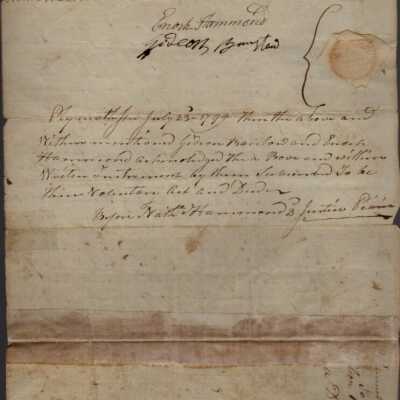 Enosh Hammond
Gideon Barstow
Plymouth ss July 23 1799 then the above and
Within mentioned Gideon Barstow and Enosh
Hammond acknowledged the a Bove and within
Writen instrument by them Subscrised To be
their Voluntary Act and Deed
Before Nathl Hammond Justice Peace